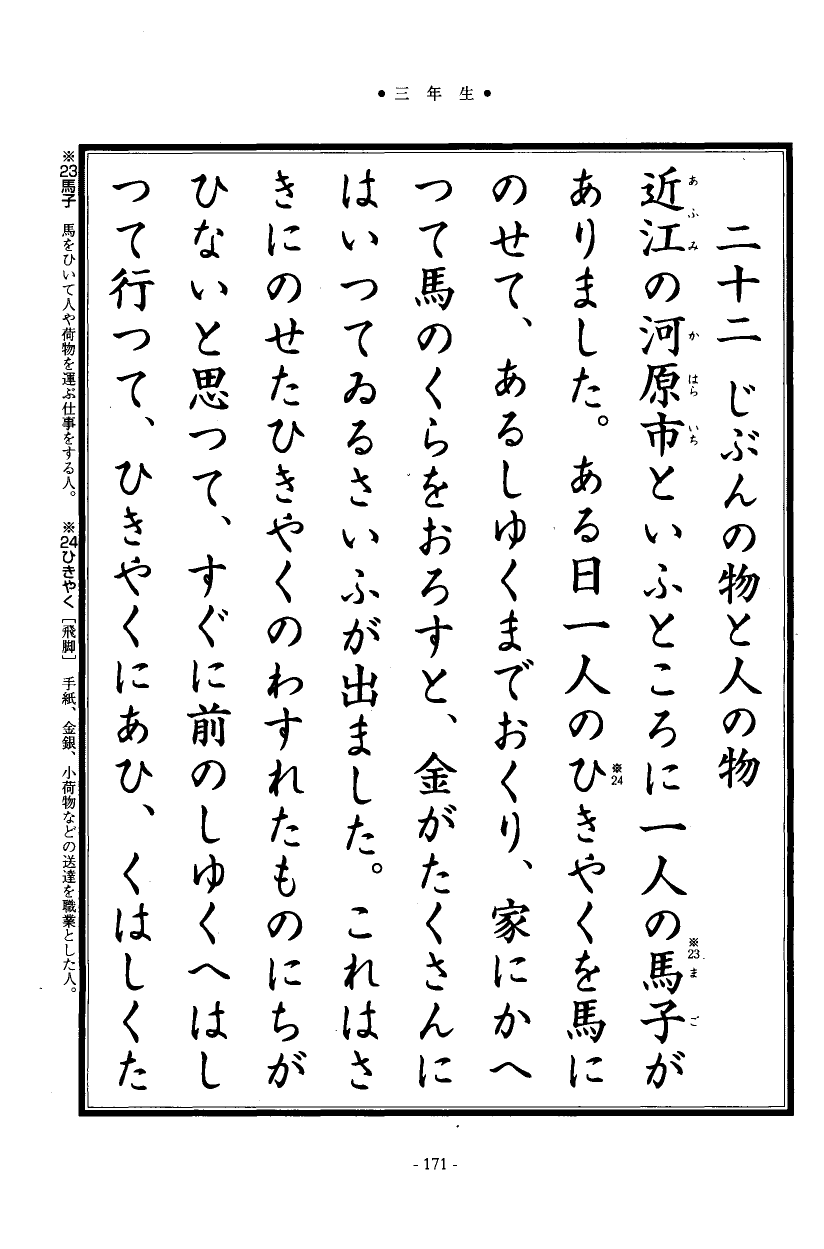 ●三年生●
二十二　じぶんの物と人の物
近江の河原市といふところに一人の馬子が
あふみ　かはらいち　※23まご
ありました。ある日一人のひきやくを馬に
※24
のせて、あるしゆくまでおくり、家にかへ
つて馬のくらをおろすと、金がたくさんに
はいつてゐるさいふが出ました。これはさ
きにのせたひきやくのわすれたものにちが
ひないと思つて、すぐに前のしゆくへはし
つて行つて、ひきやくにあひ、くはしくた
※23馬子　馬をひいて人や荷物を運ぶ仕事をする人。　※24ひきやく［飛脚］　手紙、金銀、小荷物などの送達を職業とした人。
- 171 -